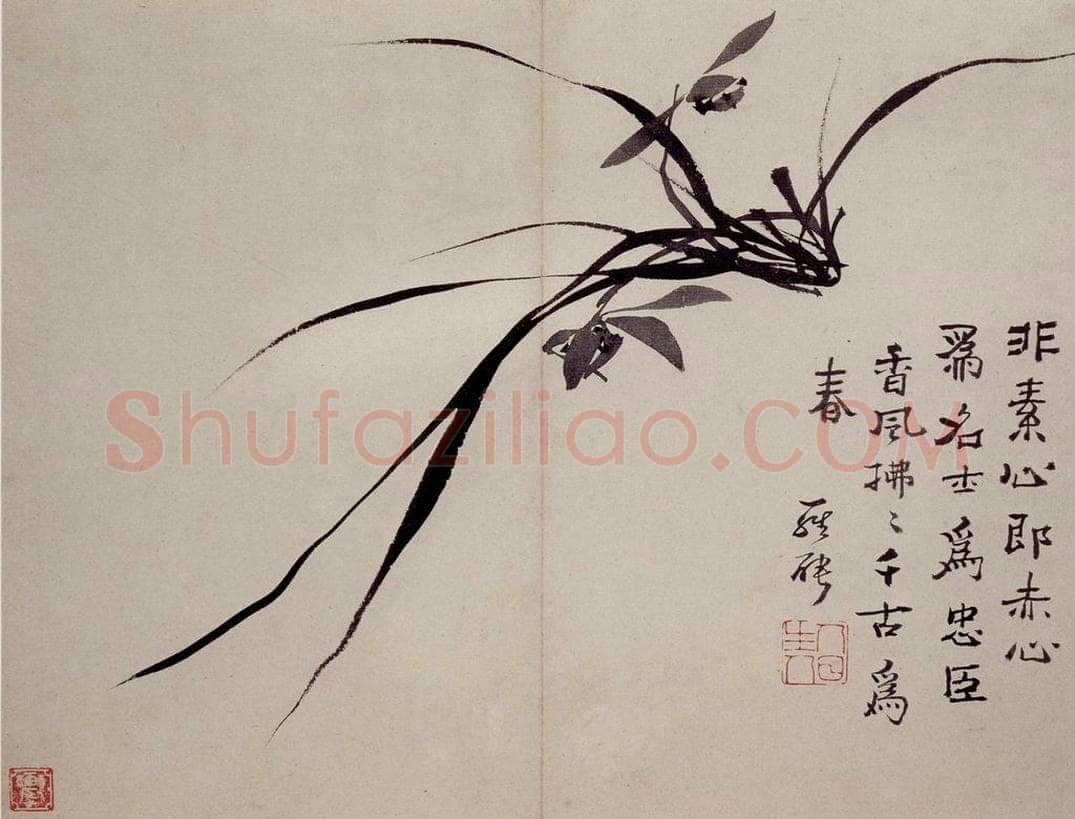 非素心即赤心
爲名士爲忠臣
香風拂〻千古爲
春
羅聘
Shufaziliao.COM